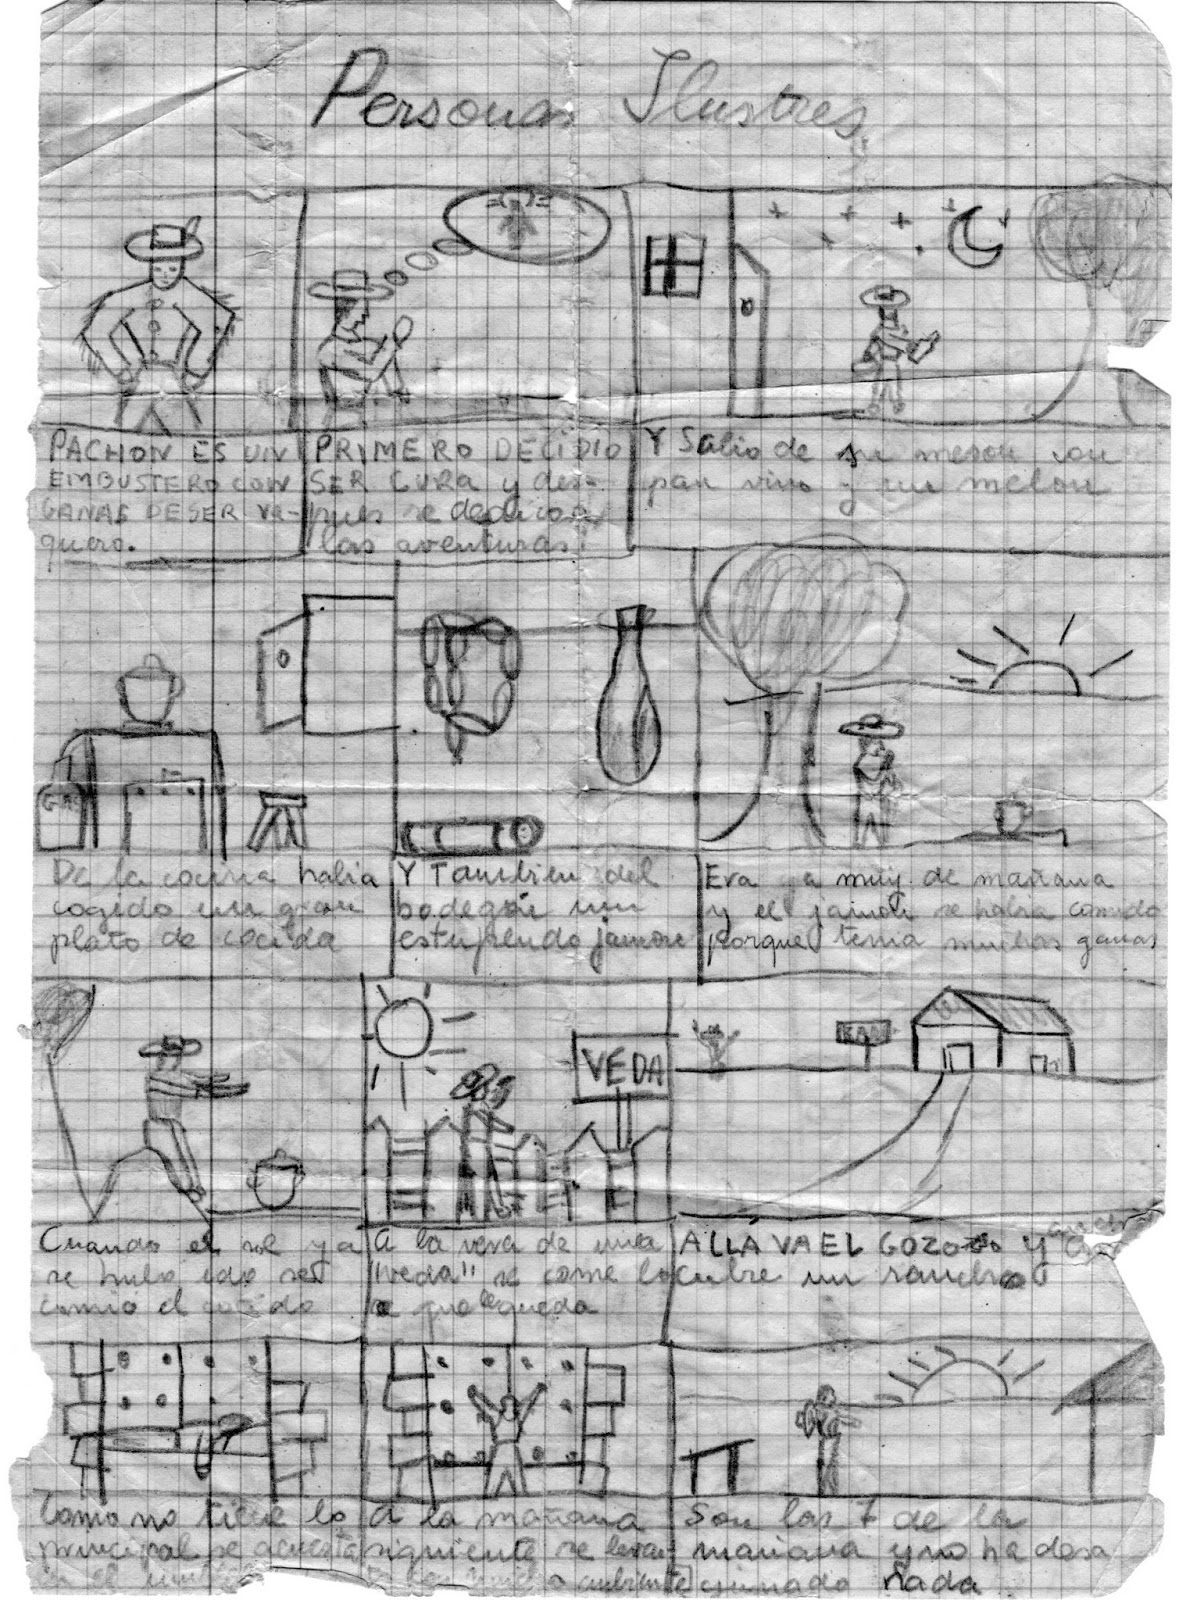 Personas Ilustres
PACHON ES UN
EMBUSTERO CON
GANAS DE SER VA-
quero.
PRIMERO DECIDIO
SER CURA y des-
pues se dedico a
las aventuras.
Y Salio de su meson con
pan vino y un melon
GAS
De la cocina habia
cogido un gran
plato de cocida
Y Tambien del
bodegón un
estupendo jamon
Era ya muy de mañana
y el jamon se habia comido
porque tenia muchas ganas
VEDA
Cuando el sol ya
se hubo ido se
comió el cocido
A la vera de una
"veda" se come lo
que le queda
RAN
ALLÁ VA EL GOZOSO Y
cubre un rancho
Como no tiene lo
principal se acuesta
en el
A la mañana
siguiente se levan
ta con
Son las 7 de la
mañana y no ha desa
yunado nada